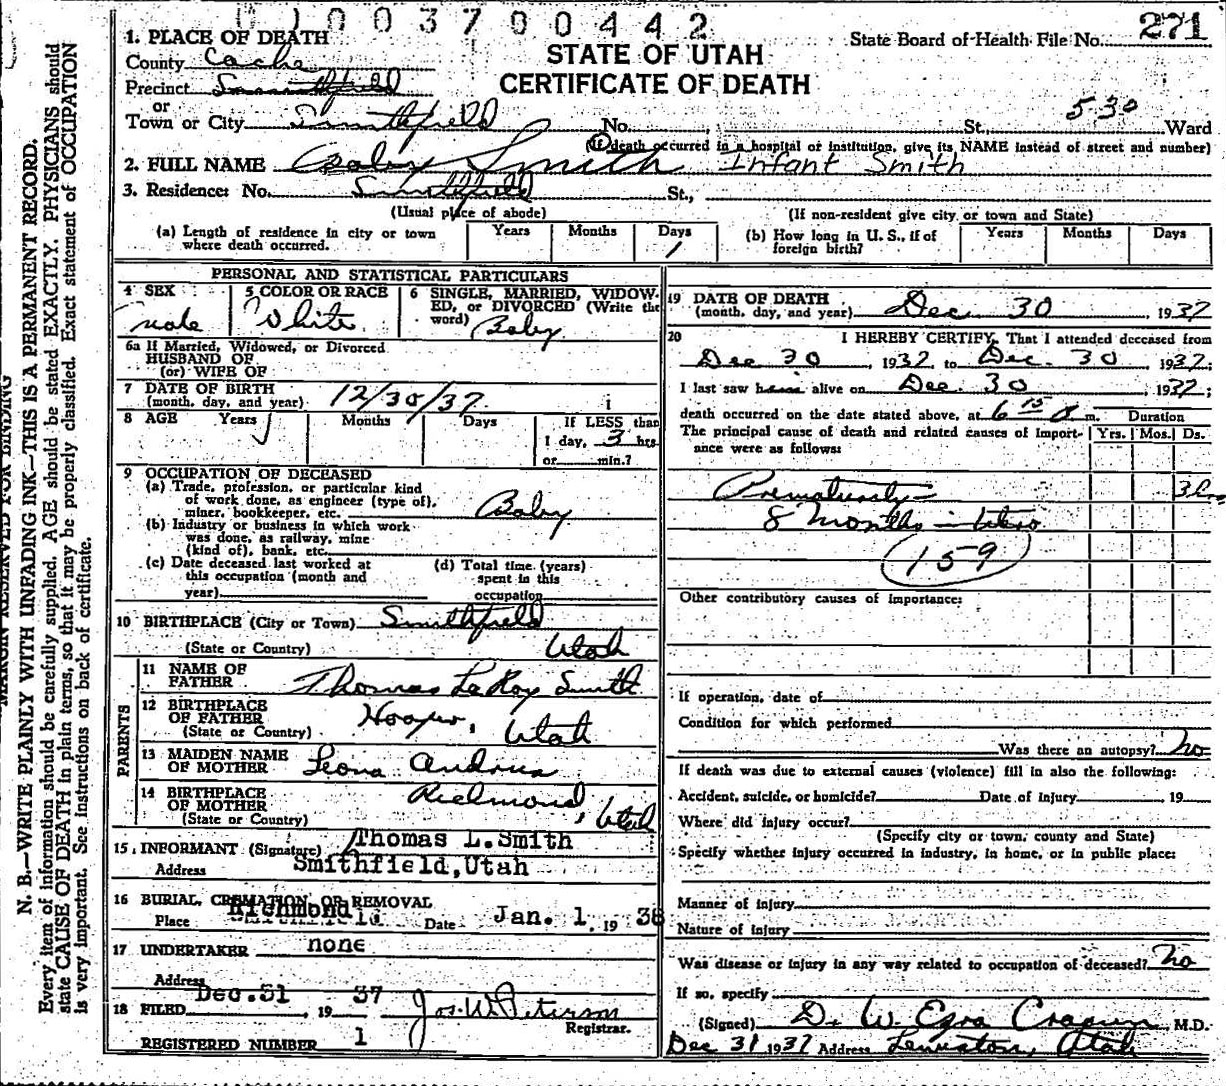 0 1 0 0 3 7 0 0 4 4 2
271
1. PLACE OF DEATH
STATE OF UTAH
CERTIFICATE OF DEATH
State Board of Health File No.
County Cache
Precinct Smithfield
or
Town or City Smithfield No. , St., 530 Ward
(If death occurred in a hospital or institution, give its NAME instead of street and number)
2. FULL NAME Baby Smith Infant Smith
3. Residence: No. Smithfield St.,
(Usual place of abode) (If non-resident give city or town and State)
(a) Length of residence in city or town where death occurred. Years Months Days 1
(b) How long in U. S., if of foreign birth? Years Months Days
PERSONAL AND STATISTICAL PARTICULARS
4 SEX male
5 COLOR OR RACE White
6 SINGLE, MARRIED, WIDOW-
ED, or DIVORCED (Write the
word) Baby
6a If Married, Widowed, or Divorced
HUSBAND OF
(or) WIFE OF
7 DATE OF BIRTH
(month, day, and year) 12/30/37
8 AGE Years Months Days If LESS than
1 day, 3 hrs.
or min.?
9 OCCUPATION OF DECEASED
(a) Trade, profession, or particular kind
of work done, as engineer (type of),
miner, bookkeeper, etc. Baby
(b) Industry or business in which work
was done, as railway, mine
(kind of), bank, etc.
(c) Date deceased last worked at
this occupation (month and
year)
(d) Total time (years)
spent in this
occupation
10 BIRTHPLACE (City or Town) Smithfield
(State or Country) Utah
PARENTS
11 NAME OF
FATHER Thomas LeRoy Smith
12 BIRTHPLACE
OF FATHER Hooper, Utah
(State or Country)
13 MAIDEN NAME
OF MOTHER Leona Andrus
14 BIRTHPLACE
OF MOTHER Richmond, Utah
(State or Country)
15. INFORMANT (Signature) Thomas L. Smith
Address Smithfield, Utah
16 BURIAL, CREMATION, OR REMOVAL
Place Richmond Date Jan. 1, 1938
17 UNDERTAKER none
Address
18 FILED Dec.31, 1937 Jos. W. Peterson
Registrar.
REGISTERED NUMBER 1
19 DATE OF DEATH
(month, day, and year) Dec. 30, 1937
20 I HEREBY CERTIFY, That I attended deceased from
Dec 30, 1937, to Dec. 30 1937;
I last saw him alive on Dec. 30, 1937;
death occurred on the date stated above, at 6 15 a m. Duration
The principal cause of death and related causes of import-
ance were as follows: Yrs. Mos. Ds.
Prematurity
8 months in utero
159
Other contributory causes of importance:
If operation, date of
Condition for which performed
Was there an autopsy? no
If death was due to external causes (violence) fill in also the following:
Accident, suicide, or homicide? Date of injury , 19
Where did injury occur?
(Specify city or town, county and State)
Specify whether injury occurred in industry, in home, or in public place:
Manner of injury
Nature of injury
Was disease or injury in any way related to occupation of deceased? no
If so, specify
(Signed) D. W. Ezra Cragun, M.D.
Dec 31 1937 Address Lewiston, Utah
MARGIN RESERVED FOR BINDING
N. B.—WRITE PLAINLY WITH UNFADING INK—THIS IS A PERMANENT RECORD.
Every item of information should be carefully supplied. AGE should be stated EXACTLY. PHYSICIANS should
state CAUSE OF DEATH in plain terms, so that it may be properly classified. Exact statement of OCCUPATION
is very important. See instructions on back of certificate.